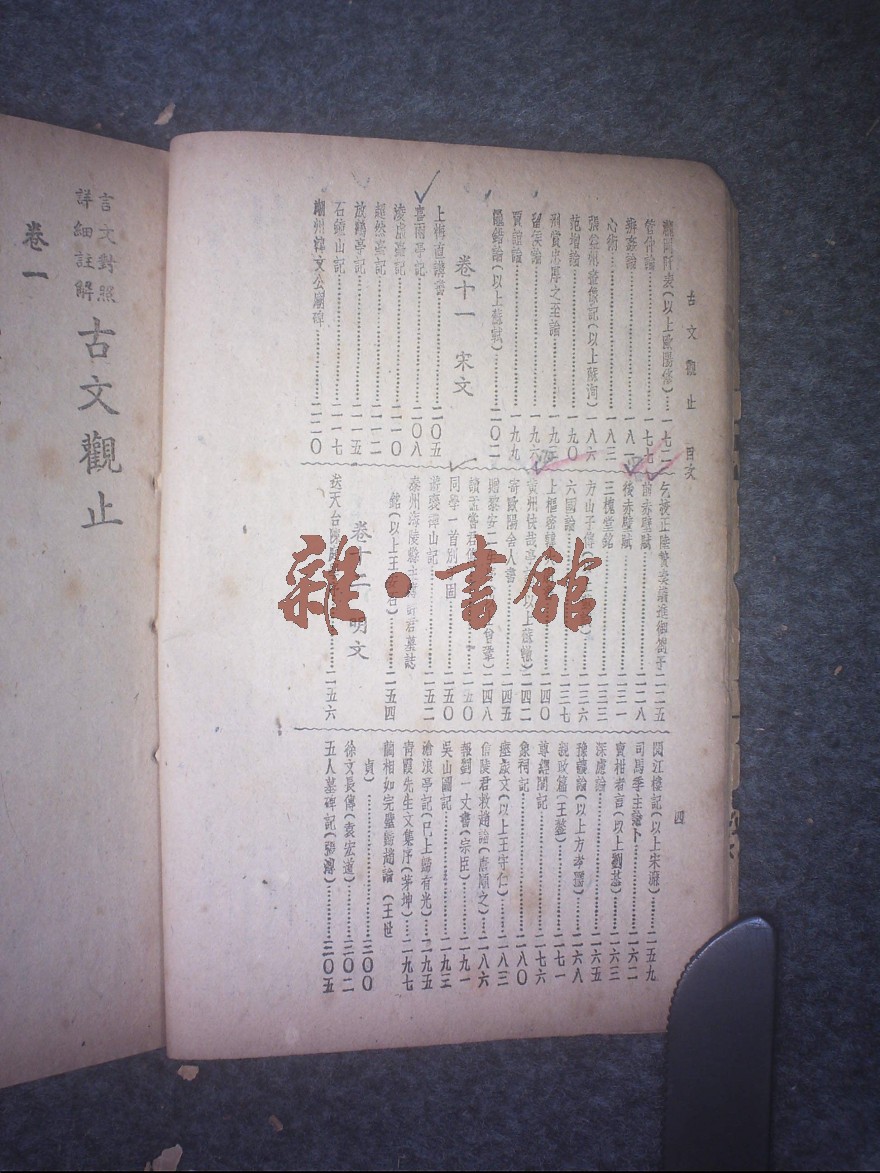 古文觀止 目次
四
瀧岡阡表(以上歐陽修)……一七二
管仲論……一七七
辨姦論……一八一
心術
張益州畫像記(以上蘇洵)……一八六
范增論……一九〇
刑賞忠厚之至論
留侯論……一九六
賈誼論……一九九
鼂錯論(以上蘇軾)……二〇二
卷十一 宋文
上梅直講書……二〇五
喜雨亭記……二〇八
凌虛臺記……二一〇
超然臺記……二一二
放鶴亭記……二一五
石鐘山記……二一七
潮州韓文公廟碑……二二〇
乞校正陸贄奏議進御劄子二二五
前赤壁賦……二二八
後赤壁賦……二三一
三槐堂銘……二三三
方山子傳……二三六
六國論……二三七
上樞密韓……二四〇
黃州快哉亭(以上蘇轍)二四二
寄歐陽舍人書……二四五
贈黎安二(曾鞏)……二四八
讀孟嘗君傳……二五〇
同學一首別子固……二五〇
遊褒禪山記……二五二
泰州海陵縣主簿許君墓誌
銘(以上王安石)……二五四
卷十二 明文
送天台陳……二五六
閱江樓記(以上宋濂)……二五九
司馬季主論卜……二六二
賣柑者言(以上劉基)……二六三
深慮論……二六五
豫讓論(以上方孝孺)……二六八
親政篇(王鏊)……二七一
尊經閣記……二七六
象祠記……二八〇
瘞旅文(以上王守仁)……二八三
信陵君救趙論(唐順之)……二八六
報劉一丈書(宗臣)……二九一
吳山圖記……二九三
滄浪亭記(已上歸有光)……二九五
青霞先生文集序(茅坤)……二九七
藺相如完璧歸趙論(王世
貞)……三〇〇
徐文長傳(袁宏道)……三〇二
五人墓碑記(張溥)……三〇五
言文對照
詳細註解
古文觀止
卷一
雜·書館